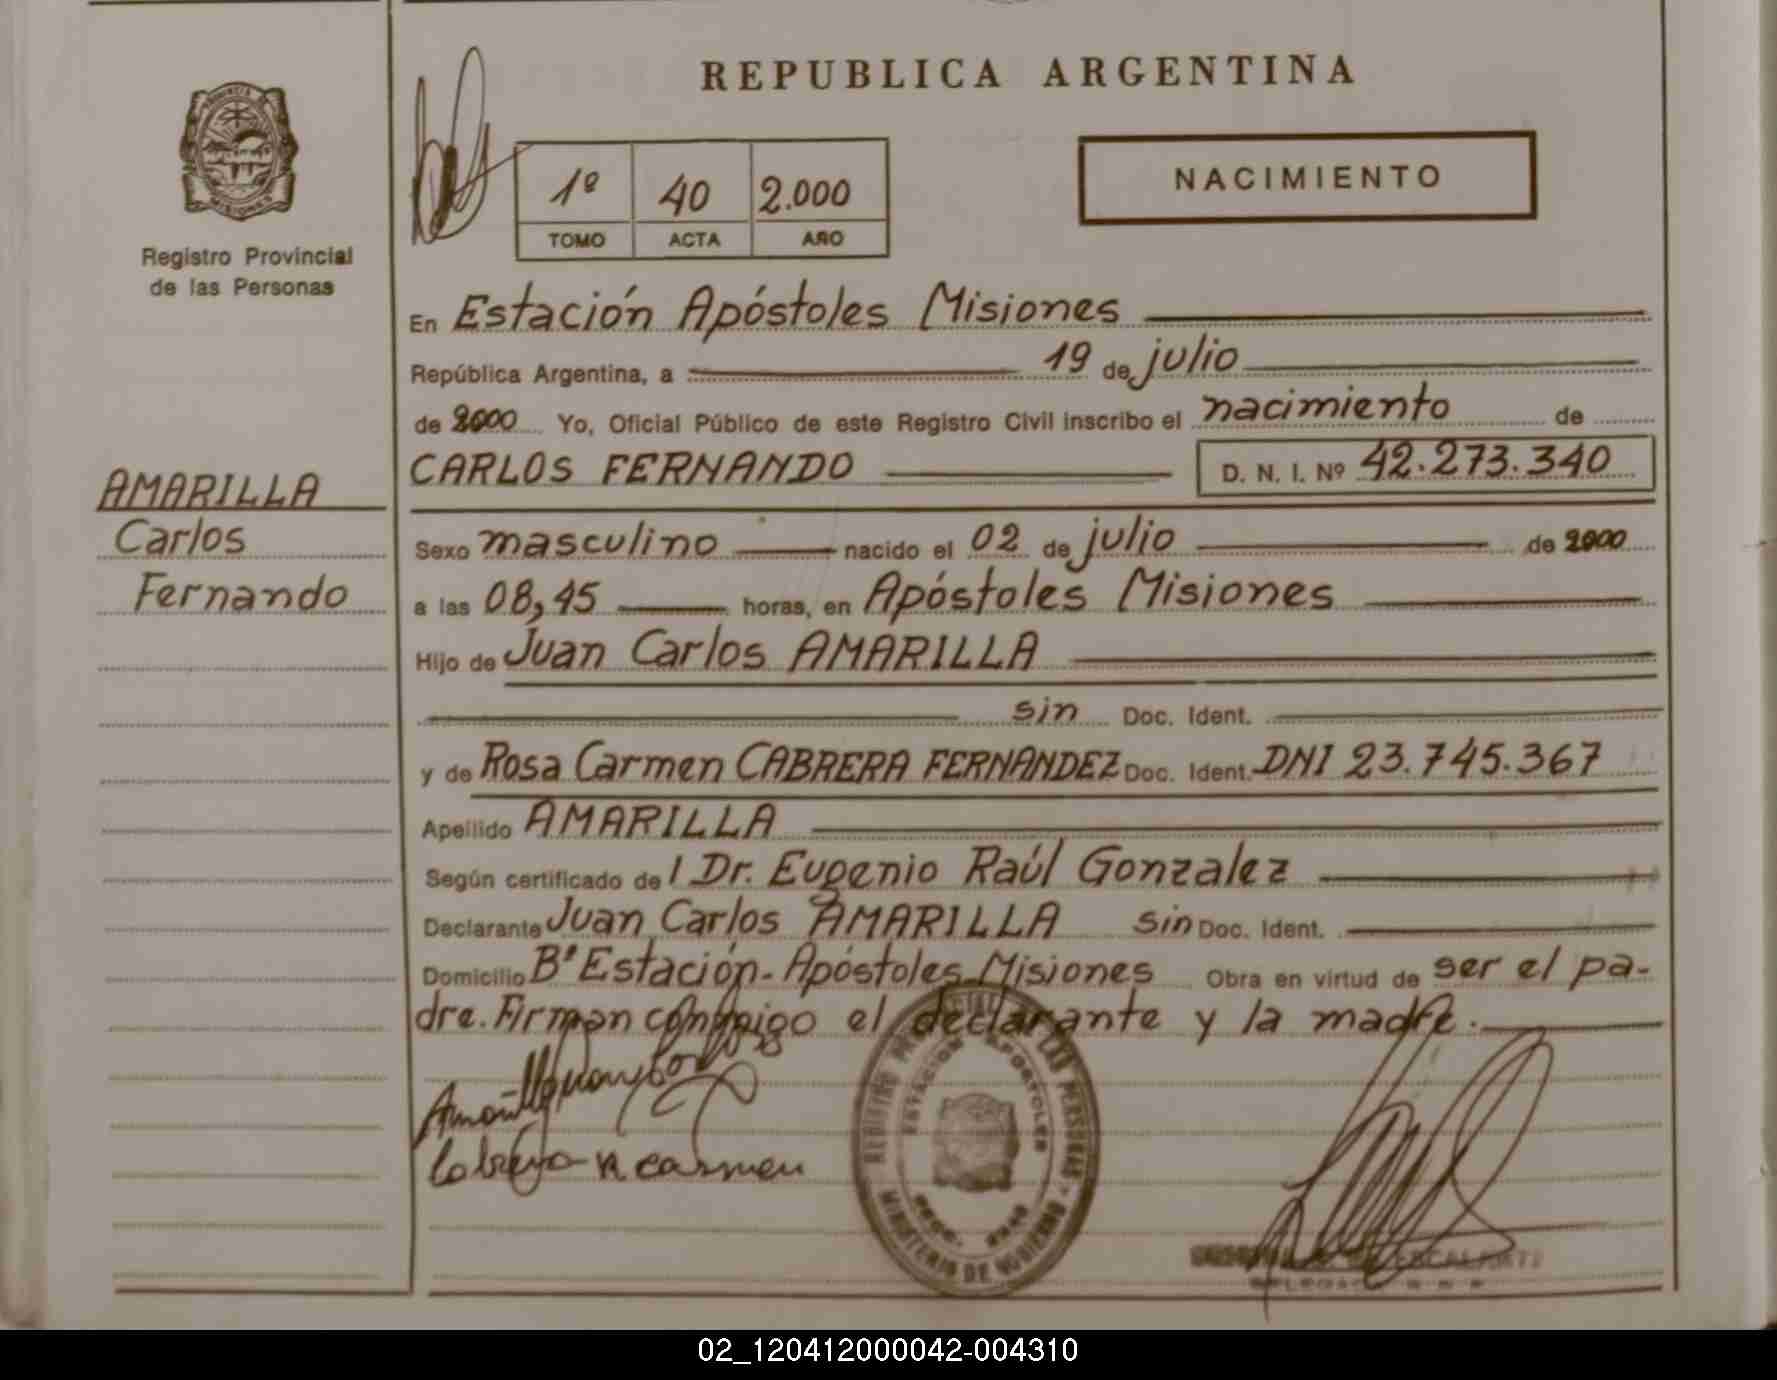 REPUBLICA ARGENTINA
PROVINCIA DE
MISIONES
Registro Provincial
de las Personas
1º 40 2.000
TOMO ACTA AÑO
NACIMIENTO
En Estación Apóstoles Misiones
República Argentina, a 19 de julio
de 2000 Yo, Oficial Público de este Registro Civil inscribo el nacimiento de
CARLOS FERNANDO D. N. I. Nº 42.273.340
AMARILLA
Carlos
Fernando
Sexo masculino nacido el 02 de julio de 2000
a las 08,45 horas, en Apóstoles Misiones
Hijo de Juan Carlos AMARILLA
sin Doc. Ident.
y de Rosa Carmen CABRERA FERNANDEZ Doc. Ident. DNI 23.745.367
Apellido AMARILLA
Según certificado de l Dr. Eugenio Raúl Gonzalez
Declarante Juan Carlos AMARILLA sin Doc. Ident.
Domicilio Bº Estación - Apóstoles - Misiones Obra en virtud de ser el pa-
dre. Firman conmigo el declarante y la madre.
Cabrera R carmen
REGISTRO PROVINCIAL DE LAS PERSONAS
ESTACION APOSTOLES
MINISTERIO DE GOBIERNO
02_120412000042-004310